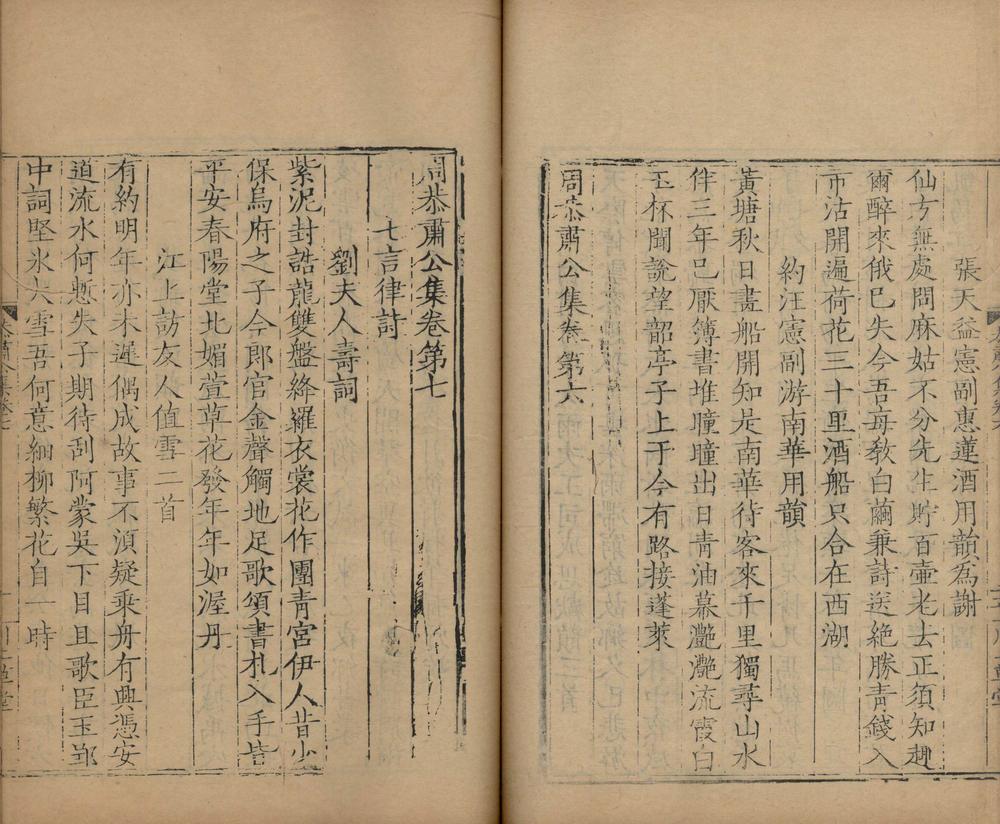 張天益憲副惠蓮酒用韻為謝
仙方無處問麻姑不分先生貯百壷老去正須知趣
爾醉來俄已失今吾每教白薾兼詩送絕勝青錢入
市沽開遍荷花三十里酒船只合在西湖
約汪憲副游南華用韻
黃塘秋日畫船開知是南華待客來千里獨尋山水
伴三年已厭簿書堆曈曈出日青油幕灔灔流霞白
玉杯聞說望韶亭子上于今有路接蓬萊
周恭肅公集卷第六
周恭肅公集卷第七
七言律詩
劉夫人壽詞
紫泥封誥龍雙盤絳羅衣裳花作團青宮伊人昔少
保烏府之子今郎官金聲觸地足歌頌書札入手皆
平安春陽堂北媚萱草花發年年如渥丹
江上訪友人值雪二首
有約明年亦未遲偶成故事不湏疑乘舟有興憑安
道流水何慙失子期待刮阿蒙吳下目且歌臣玉郢
中詞堅氷大雪吾何意細柳繁花自一時